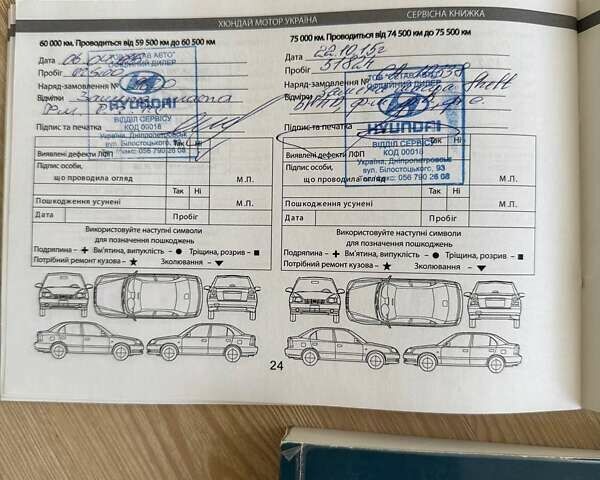 ХЮНДАЙ МОТОР УКРАЇНА
СЕРВІСНА КНИЖКА
60 000 км. Проводиться від 59 500 км до 60 500 км
Дата
Пробіг
Наряд-замовлення №
Відмітки
Підпис та печатка
ОФІЦІЙНИЙ ДИЛЕР
HYUNDAI
ВІДДІЛ СЕРВІСУ
КОД 00018
Україна, Дніпропетровськ
вул. Білостоцького, 93
Тел./факс: 056 790 26 08
Так Ні
Виявлені дефекти ЛФП
Підпис особи,
що проводила огляд М.П.
Так Ні
Пошкодження усунені М.П.
Дата Пробіг
Використовуйте наступні символи
для позначення пошкоджень
Подряпина – + Вм'ятина, випуклість – ● Тріщина, розрив – ■
Потрібний ремонт кузова – ★ Зколювання – ▼
75 000 км. Проводиться від 74 500 км до 75 500 км
Дата 22.10.15г
Пробіг
Наряд-замовлення №
Відмітки
Підпис та печатка
HYUNDAI
ВІДДІЛ СЕРВІСУ
КОД 00018
Україна, Дніпропетровськ
вул. Білостоцького, 93
Тел./факс: 056 790 26 08
Так Ні
Виявлені дефекти ЛФП
Підпис особи,
що проводила огляд М.П.
Так Ні
Пошкодження усунені М.П.
Дата Пробіг
Використовуйте наступні символи
для позначення пошкоджень
Подряпина – + Вм'ятина, випуклість – ● Тріщина, розрив – ■
Потрібний ремонт кузова – ★ Зколювання – ▼
24